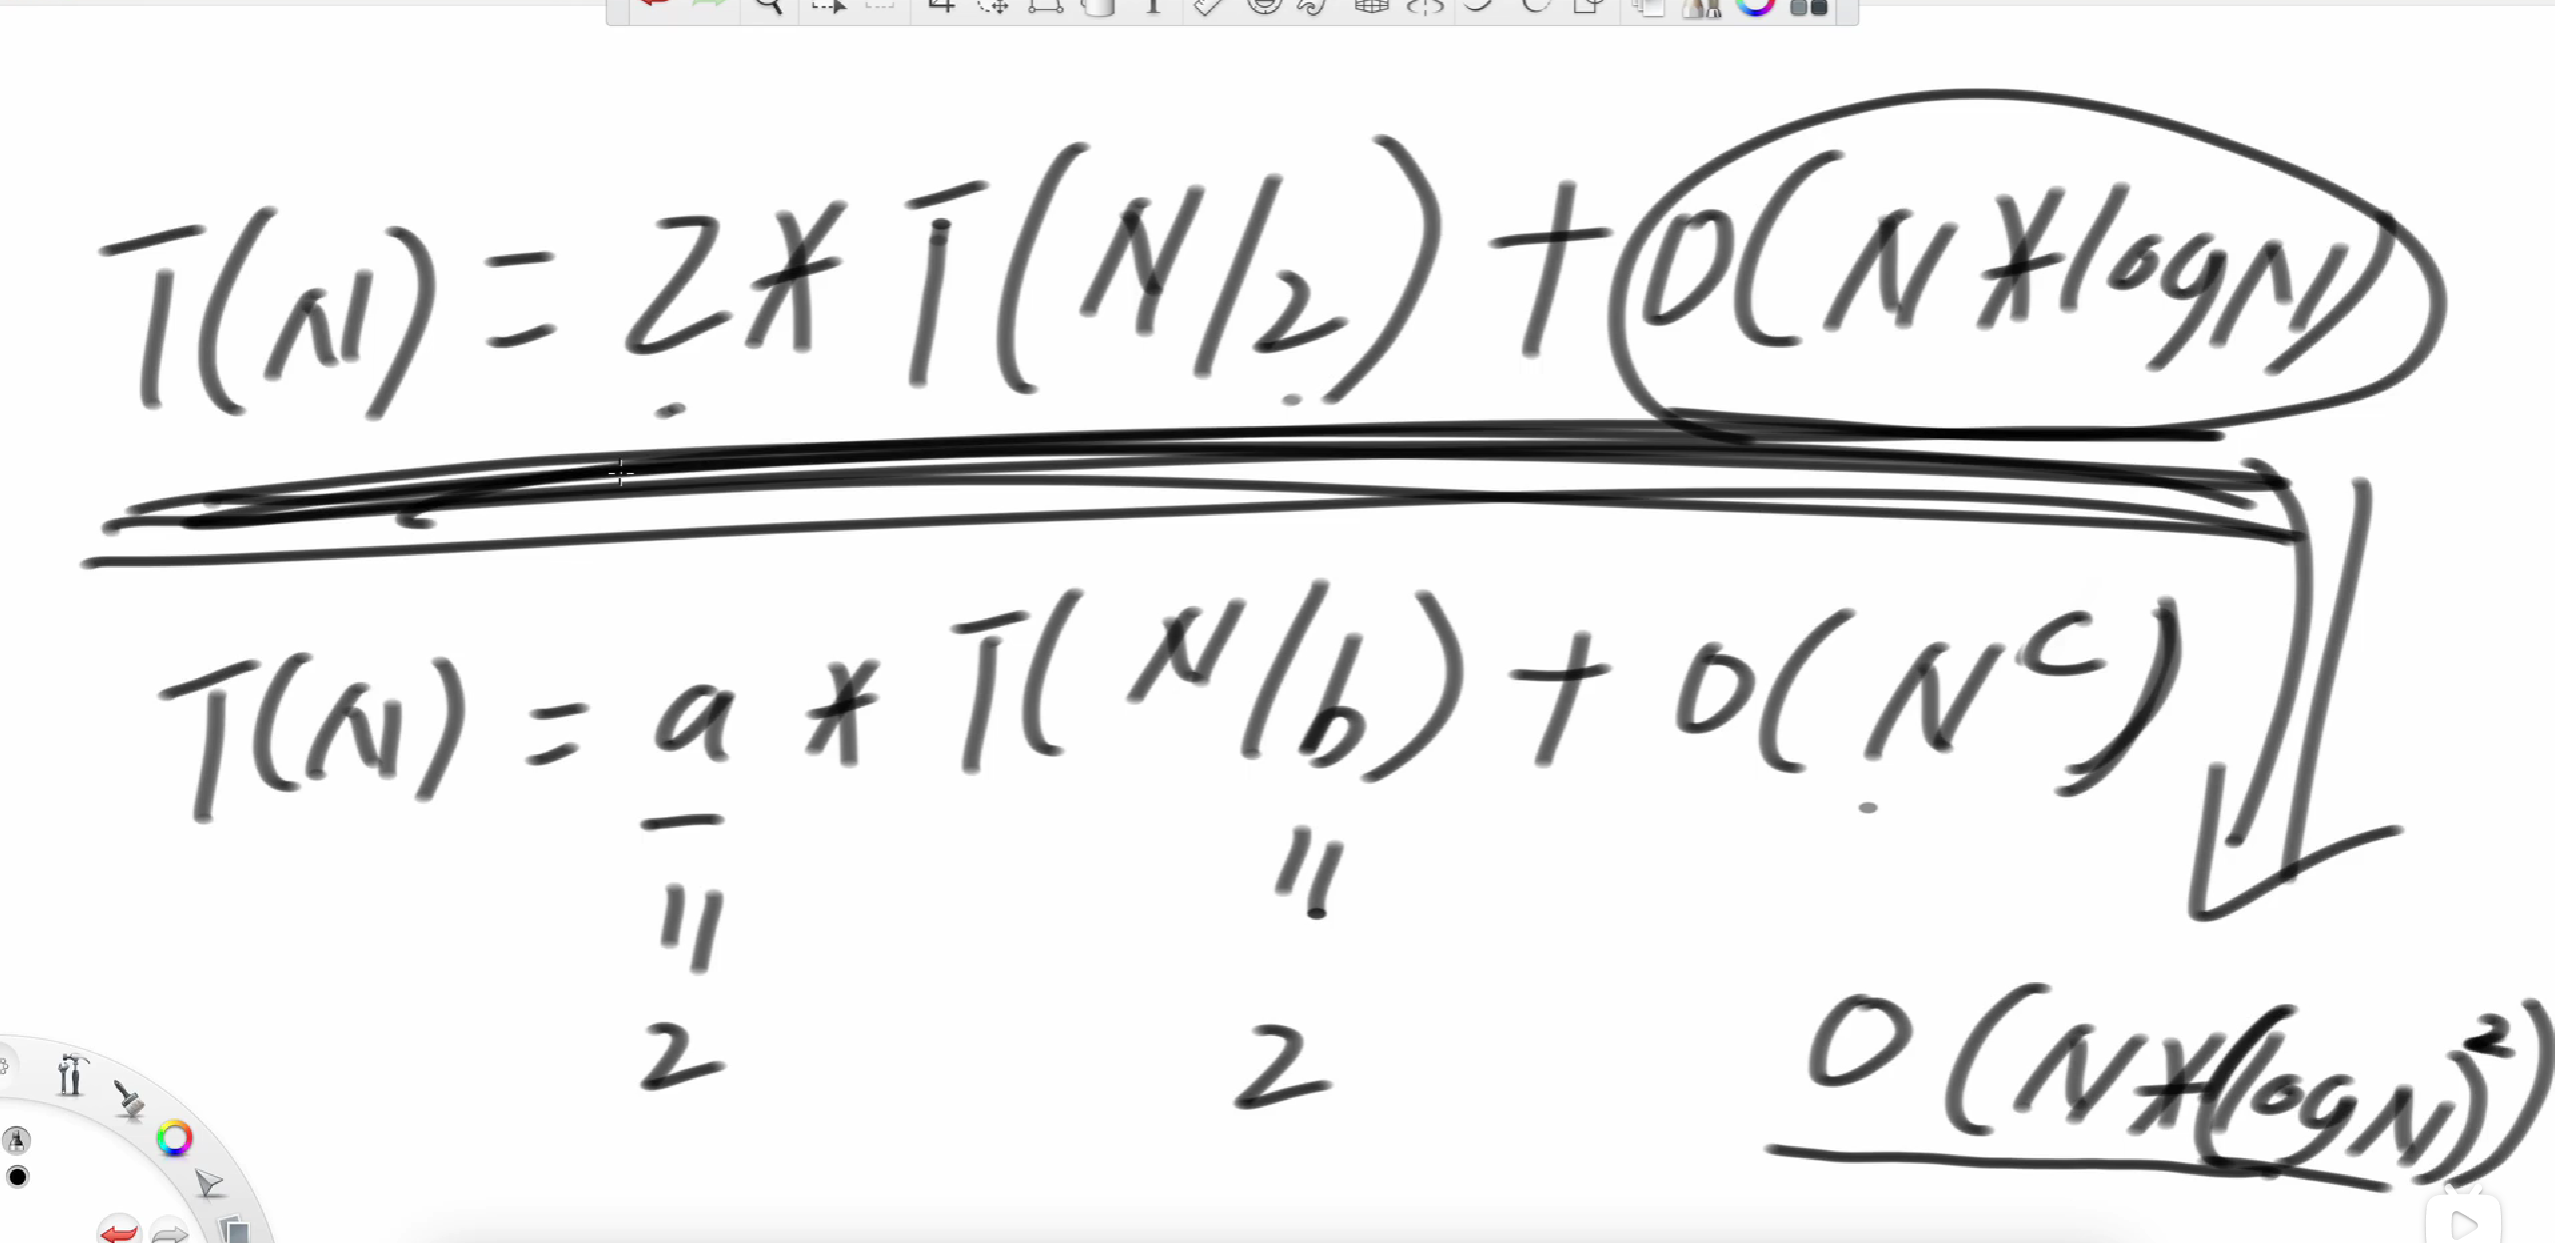 T(N) = 2 * T(N/2) + O(N*logN)
T(N) = a * T(N/b) + O(N^c)
=  =
2  2
O(N*(logN)^2)